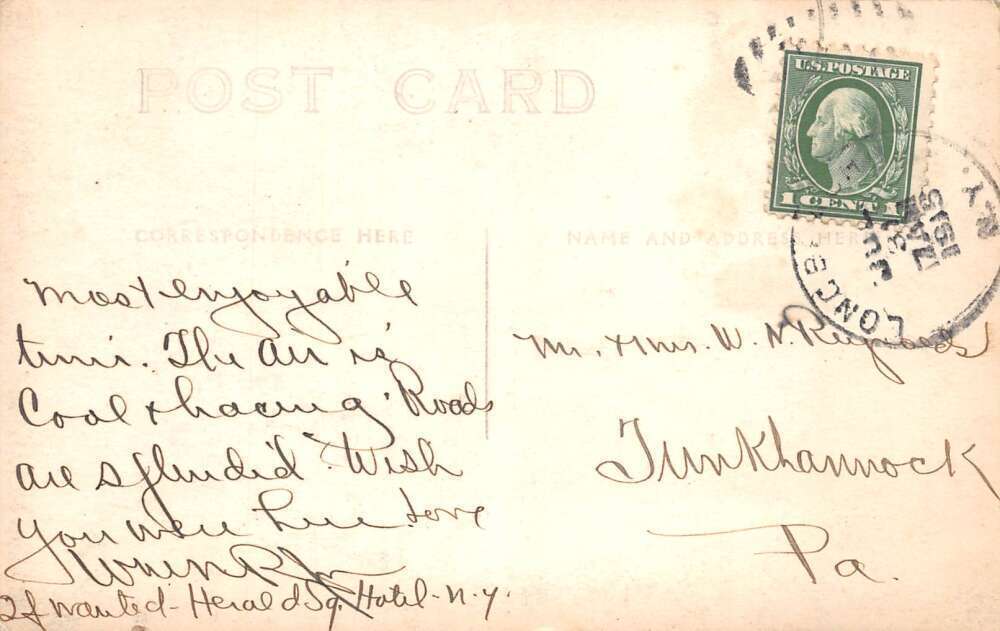 POST CARD
U.S. POSTAGE
1 CENT 1
LONG B
N.Y.
1915
CORRESPONDENCE HERE
NAME AND ADDRESS HERE
Most enjoyable
time. The air is
Cool & bracing. Roads
are splendid. Wish
you were here. Love
If wanted - Herald Sq. Hotel - N.Y.
Mr. & Mrs. W. N. Reynolds
Tunkhannock
Pa.